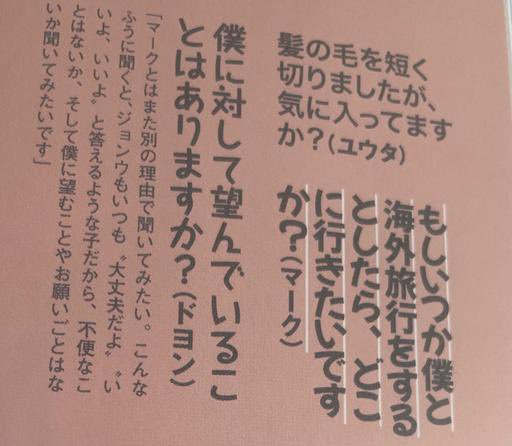 髪の毛を短く
切りましたが、
気に入ってます
か？(ユウタ)
もしいつか僕と
海外旅行をする
としたら、どこ
に行きたいです
か？(マーク)
僕に対して望んでいるこ
とはありますか？(ドヨン)
「マークとはまた別の理由で聞いてみたい。こんな
ふうに聞くと、ジョンウもいつも〝大丈夫だよ〟〝い
いよ、いいよ〟と答えるような子だから、不便なこ
とはないか、そして僕に望むことやお願いごとはな
いか聞いてみたいです」